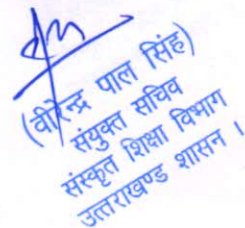 (वीरेन्द्र पाल सिंह)
संयुक्त सचिव
संस्कृत शिक्षा विभाग
उत्तराखण्ड शासन ।